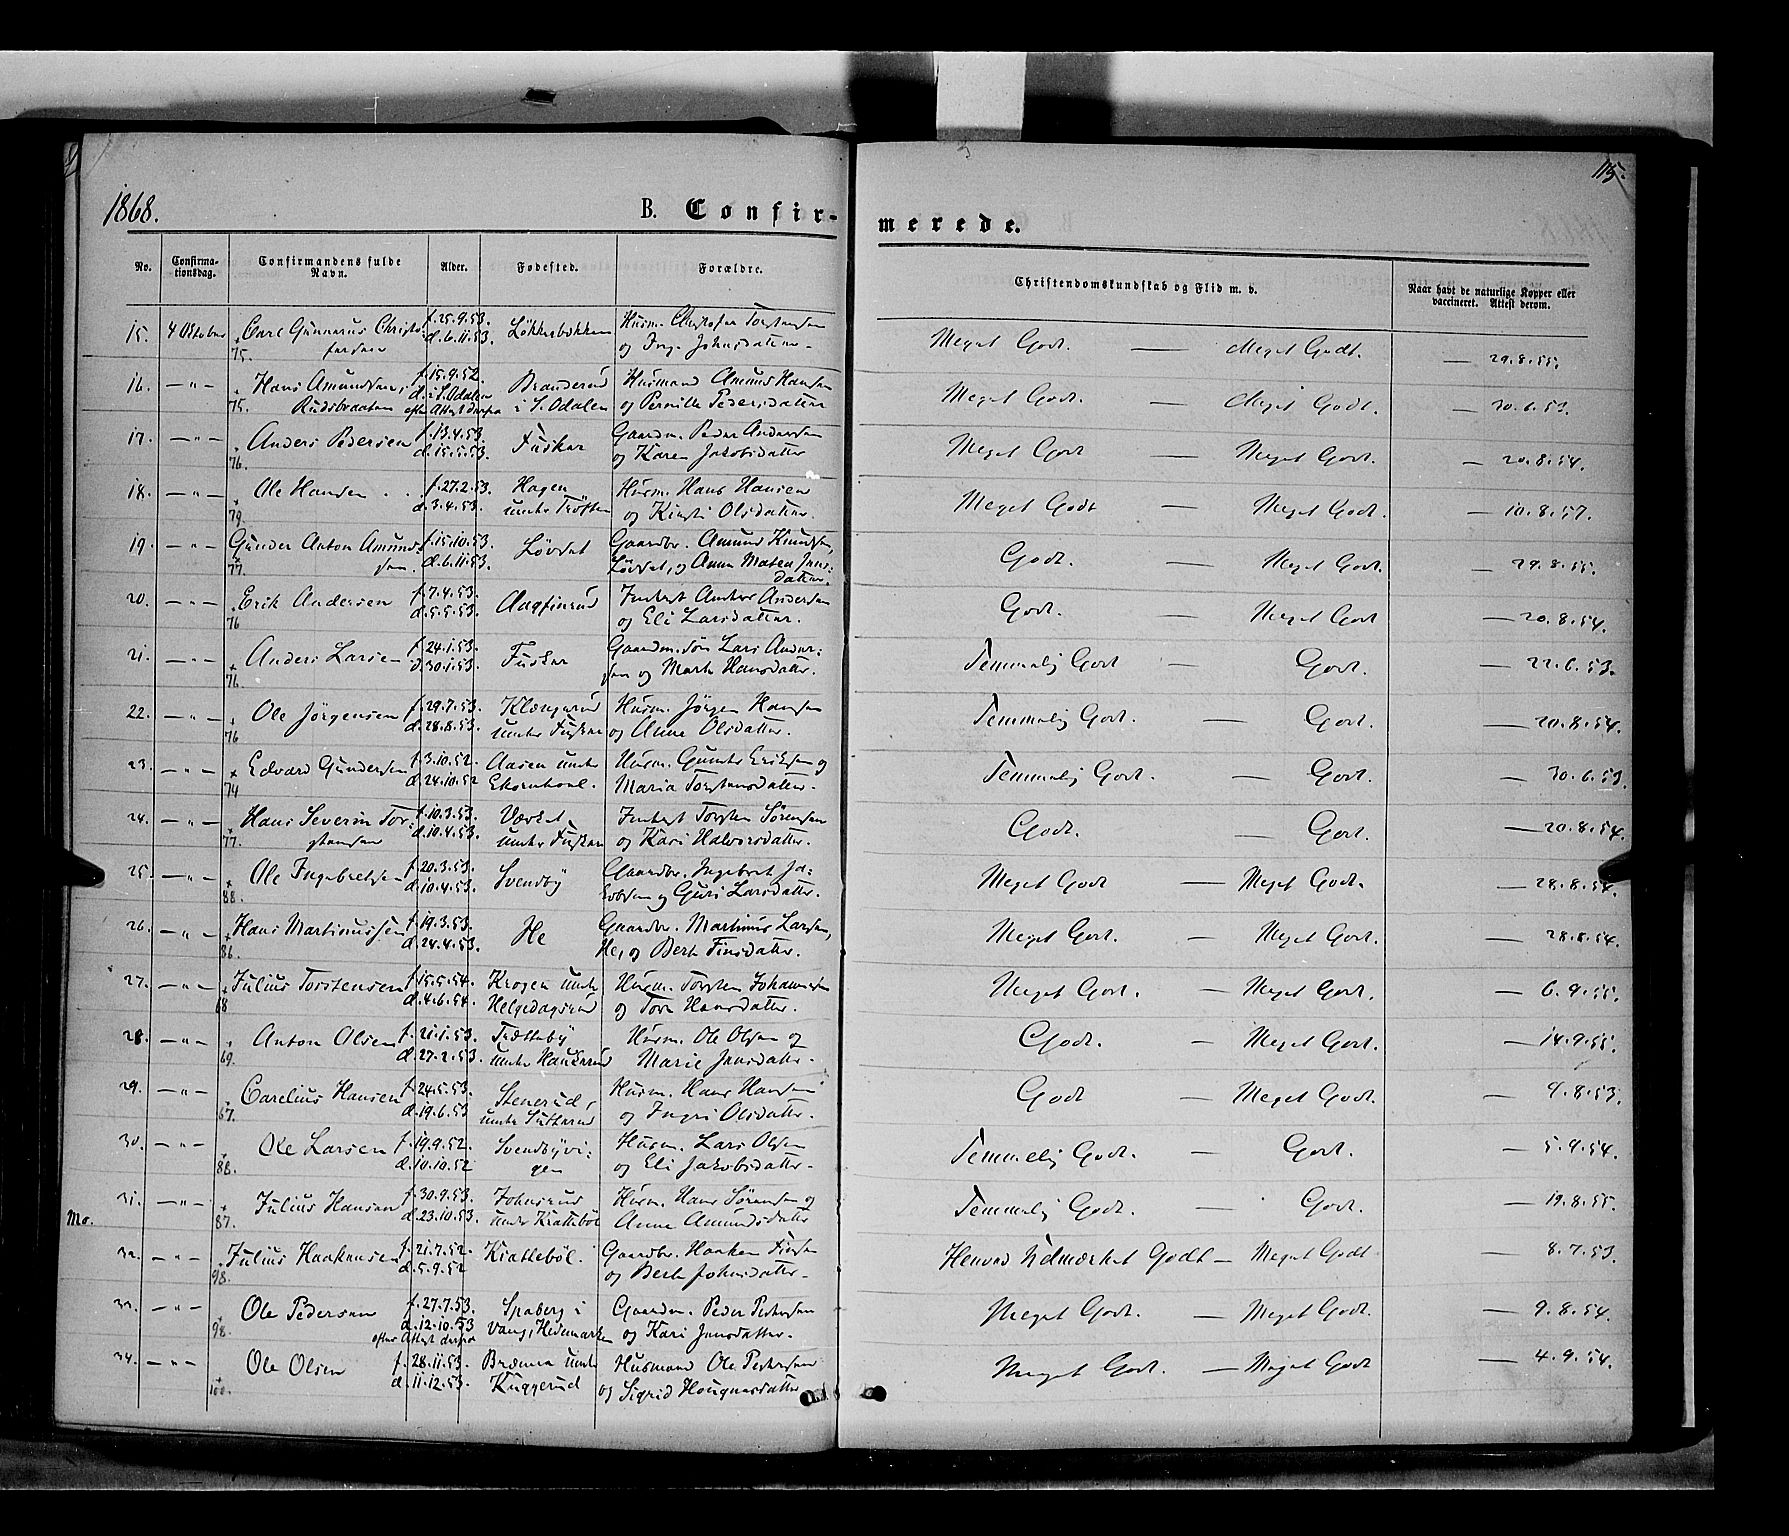 115.
1868.
B. Confirmerede.
No. Confirmationsdag. Confirmandens fulde Navn. Alder. Fødested. Forældre. Christendomskundskab og Flid m. v. Naar havt de naturlige Kopper eller vaccineret. Attest derom.
15. 4 Oktober Carl Gunnarus Christo- f. 25.9.53. Løkkebakken Husm. Christofer Torstensen Meget Godt. — Meget Godt. — 29.8.55.
75. fersen d. 6.11.53. og Ing. Johnsdatter.
16. — " — Hans Amundsen, f. 15.9.52. Branderud Husmand Amund Hansen Meget Godt. — Meget Godt. — 30.6.53.
75. Rudsbraaten d. i S. Odalen i S. Odalen og Pernille Pedersdatter
efter Attest derfra
17. — " — Anders Pedersen f. 13.4.53. Fusker Gaardm. Peder Andersen Meget Godt — Meget Godt. — 20.8.54.
76. d. 15.5.53. og Karen Jakobsdatter
18. — " — Ole Hansen f. 27.2.53. Hagen Husm. Hans Hansen Meget Godt — Meget Godt. — 10.8.57.
79. d. 3.4.53. under Trøften og Kirsti Olsdatter.
19. — " — Gunder Anton Amund- f. 15.10.53. Løvdat Gaardbr. Amund Knudsen, Godt. — Meget Godt. — 29.8.55.
77. sen. d. 6.11.53. Løvdat, og Anne Maten Jens-
datter.
20. — " — Erik Andersen f. 7.4.53. Aagfinrud Inderst Anders Andersen Godt. — Meget Godt. — 20.8.54.
76 d. 5.5.53. og Eli Larsdatter.
21. — " — Anders Larsen f. 24.1.53. Fusker Gaardm. Søn Lars Ander- Temmelig Godt — Godt. — 22.6.53.
76. d. 30.1.53. sen og Marte Hansdatter.
22. — " — Ole Jörgensen f. 29.7.53. Klængsrud Husm. Jörgen Hansen Temmelig Godt. — Godt. — 20.8.54.
76 d. 28.8.53. under Fusker og Anne Olsdatter.
23. — " — Edvard Gundersen f. 3.10.52. Aasen under Husm. Gunder Eriksen og Temmelig Godt. — Godt. — 30.6.53.
74 d. 24.10.52 Ekornhoel. Maria Torstensdatter.
24. — " — Hans Severin Tor- f. 10.3.53. Værket Inderst Torsten Sörensen Godt. — Godt. — 20.8.54.
77. stensen d. 10.4.53. under Fusker og Kari Halvorsdatter.
25. — " — Ole Ingebretsen f. 20.3.53. Svendby Gaardbr. Ingebret Ja- Meget Godt — Meget Godt. — 28.8.54.
88. d. 10.4.53. kobsen og Guri Larsdatter.
26. — " — Hans Martinussen f. 19.3.53. He Gaardbr. Martinus Larsen, Meget Godt. — Meget Godt. — 28.8.54.
86. d. 24.4.53. He, og Berte Finsdatter.
27. — " — Julius Torstensen f. 15.5.54. Krogen under Husm. Torsten Johannesen Meget Godt. — Meget Godt. — 6.9.55.
68 d. 4.6.54. Helgedagsrud og Tore Hansdatter.
28. — " — Anton Olsen f. 21.1.53. Trætteby Husm. Ole Olsen og Godt. — Meget Godt. — 14.9.55.
69. d. 27.2.53. under Haukerud Marie Jensdatter.
29. — " — Carelius Hansen f. 24.5.53. Stenerud, Husm. Hans Hansen Godt — Meget Godt. — 9.8.53.
67. d. 19.6.53 under Sutterud og Ingri Olsdatter.
30. — " — Ole Larsen f. 19.9.52. Svendbyvi- Husm. Lars Olsen Temmelig Godt. — Godt. — 5.9.54.
88. d. 10.10.52 gen og Eli Jakobsdatter.
31. — " — Julius Hansen f. 30.9.53. Johnsrud Husm. Hans Sörensen og Temmelig Godt. — Godt. — 19.8.55.
Mo. 87. d. 23.10.53. under Krattebøl Anne Amundsdatter
32. — " — Julius Haakensen f. 21.7.52. Krattebøl. Gaardbr. Haaken Finsen Henved Udmærket Godt — Meget Godt — 8.7.53.
98. d. 5.9.52 og Berte Johnsdatter.
33. — " — Ole Pedersen f. 27.7.53. Spaberg i Gaardm. Peder Pedersen Meget Godt. — Meget Godt. — 9.8.54.
98. d. 12.10.53 Vang, Hedemarken og Kari Jensdatter.
efter Attest derfra
34. — " — Ole Olsen f. 28.11.53. Brænna under Husmand Ole Pedersen Meget Godt. — Meget Godt — 4.9.54.
100. d. 11.12.53. Kuggerud og Sigrid Hougnasdatter